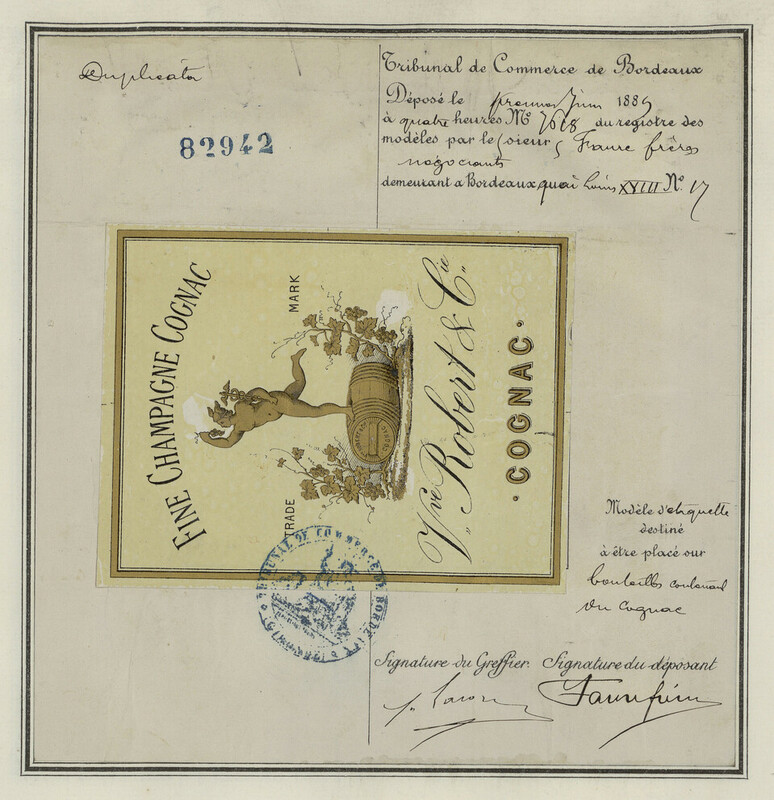 Duplicata
82942
Tribunal de Commerce de Bordeaux
Déposé le premier Juin 1885
à quatre heures No 7618 du registre des
modèles par le sieurs Faure frères
négociants
demeurant a Bordeaux quai Louis XVIII No 17
FINE CHAMPAGNE COGNAC
TRADE MARK
Vve Robert & Cie
COGNAC
TRIBUNAL DE COMMERCE DE BORDEAUX
Modèle d'étiquette
destiné
à être placé sur
bouteilles contenant
du cognac
Signature du Greffier
Signature du déposant
Faure frères